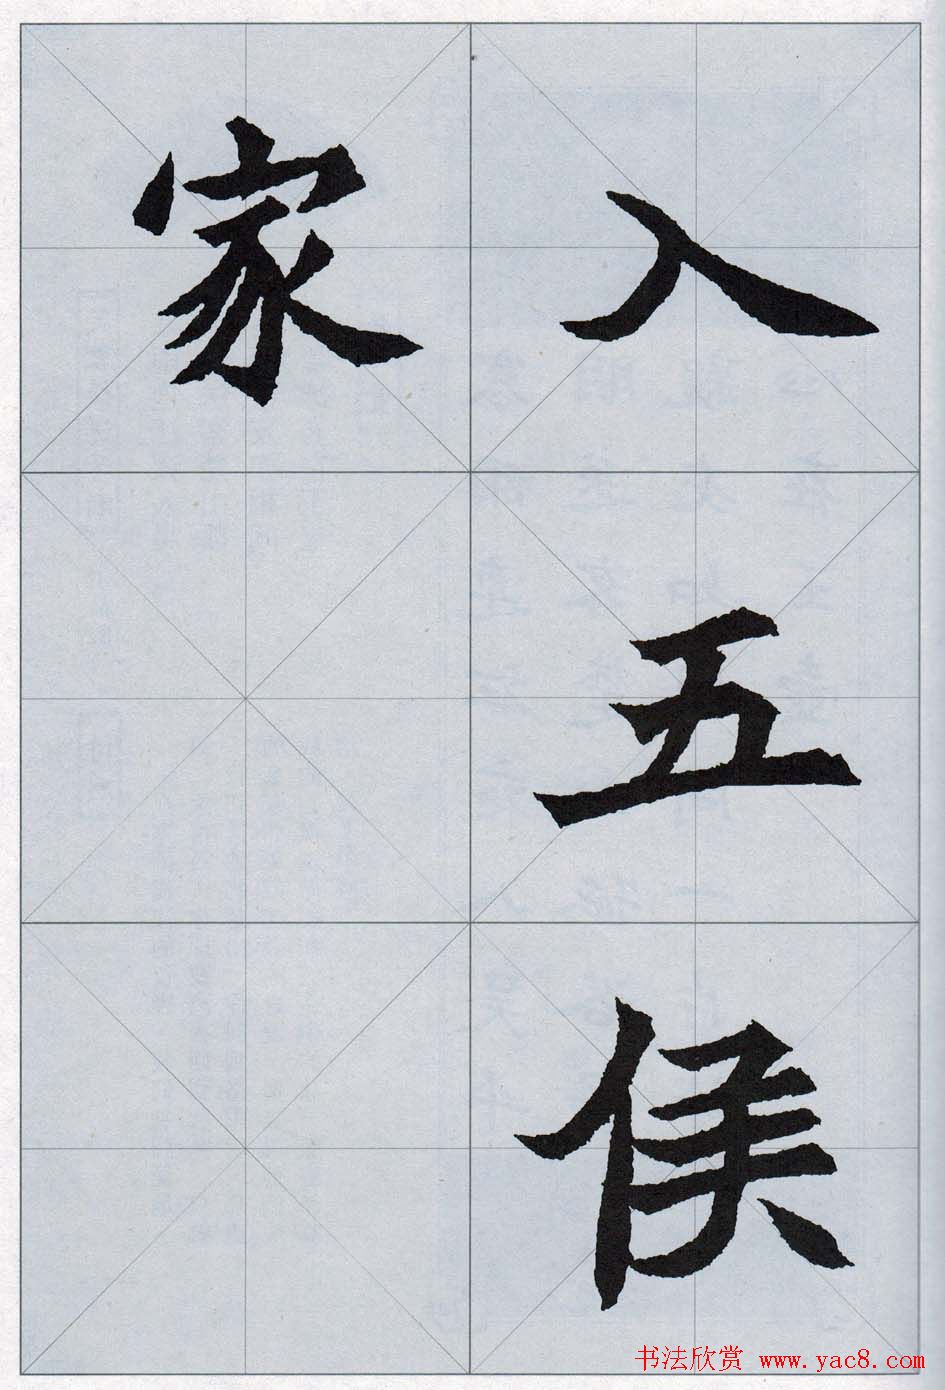 入五侯
家
书法欣赏 www.yac8.com